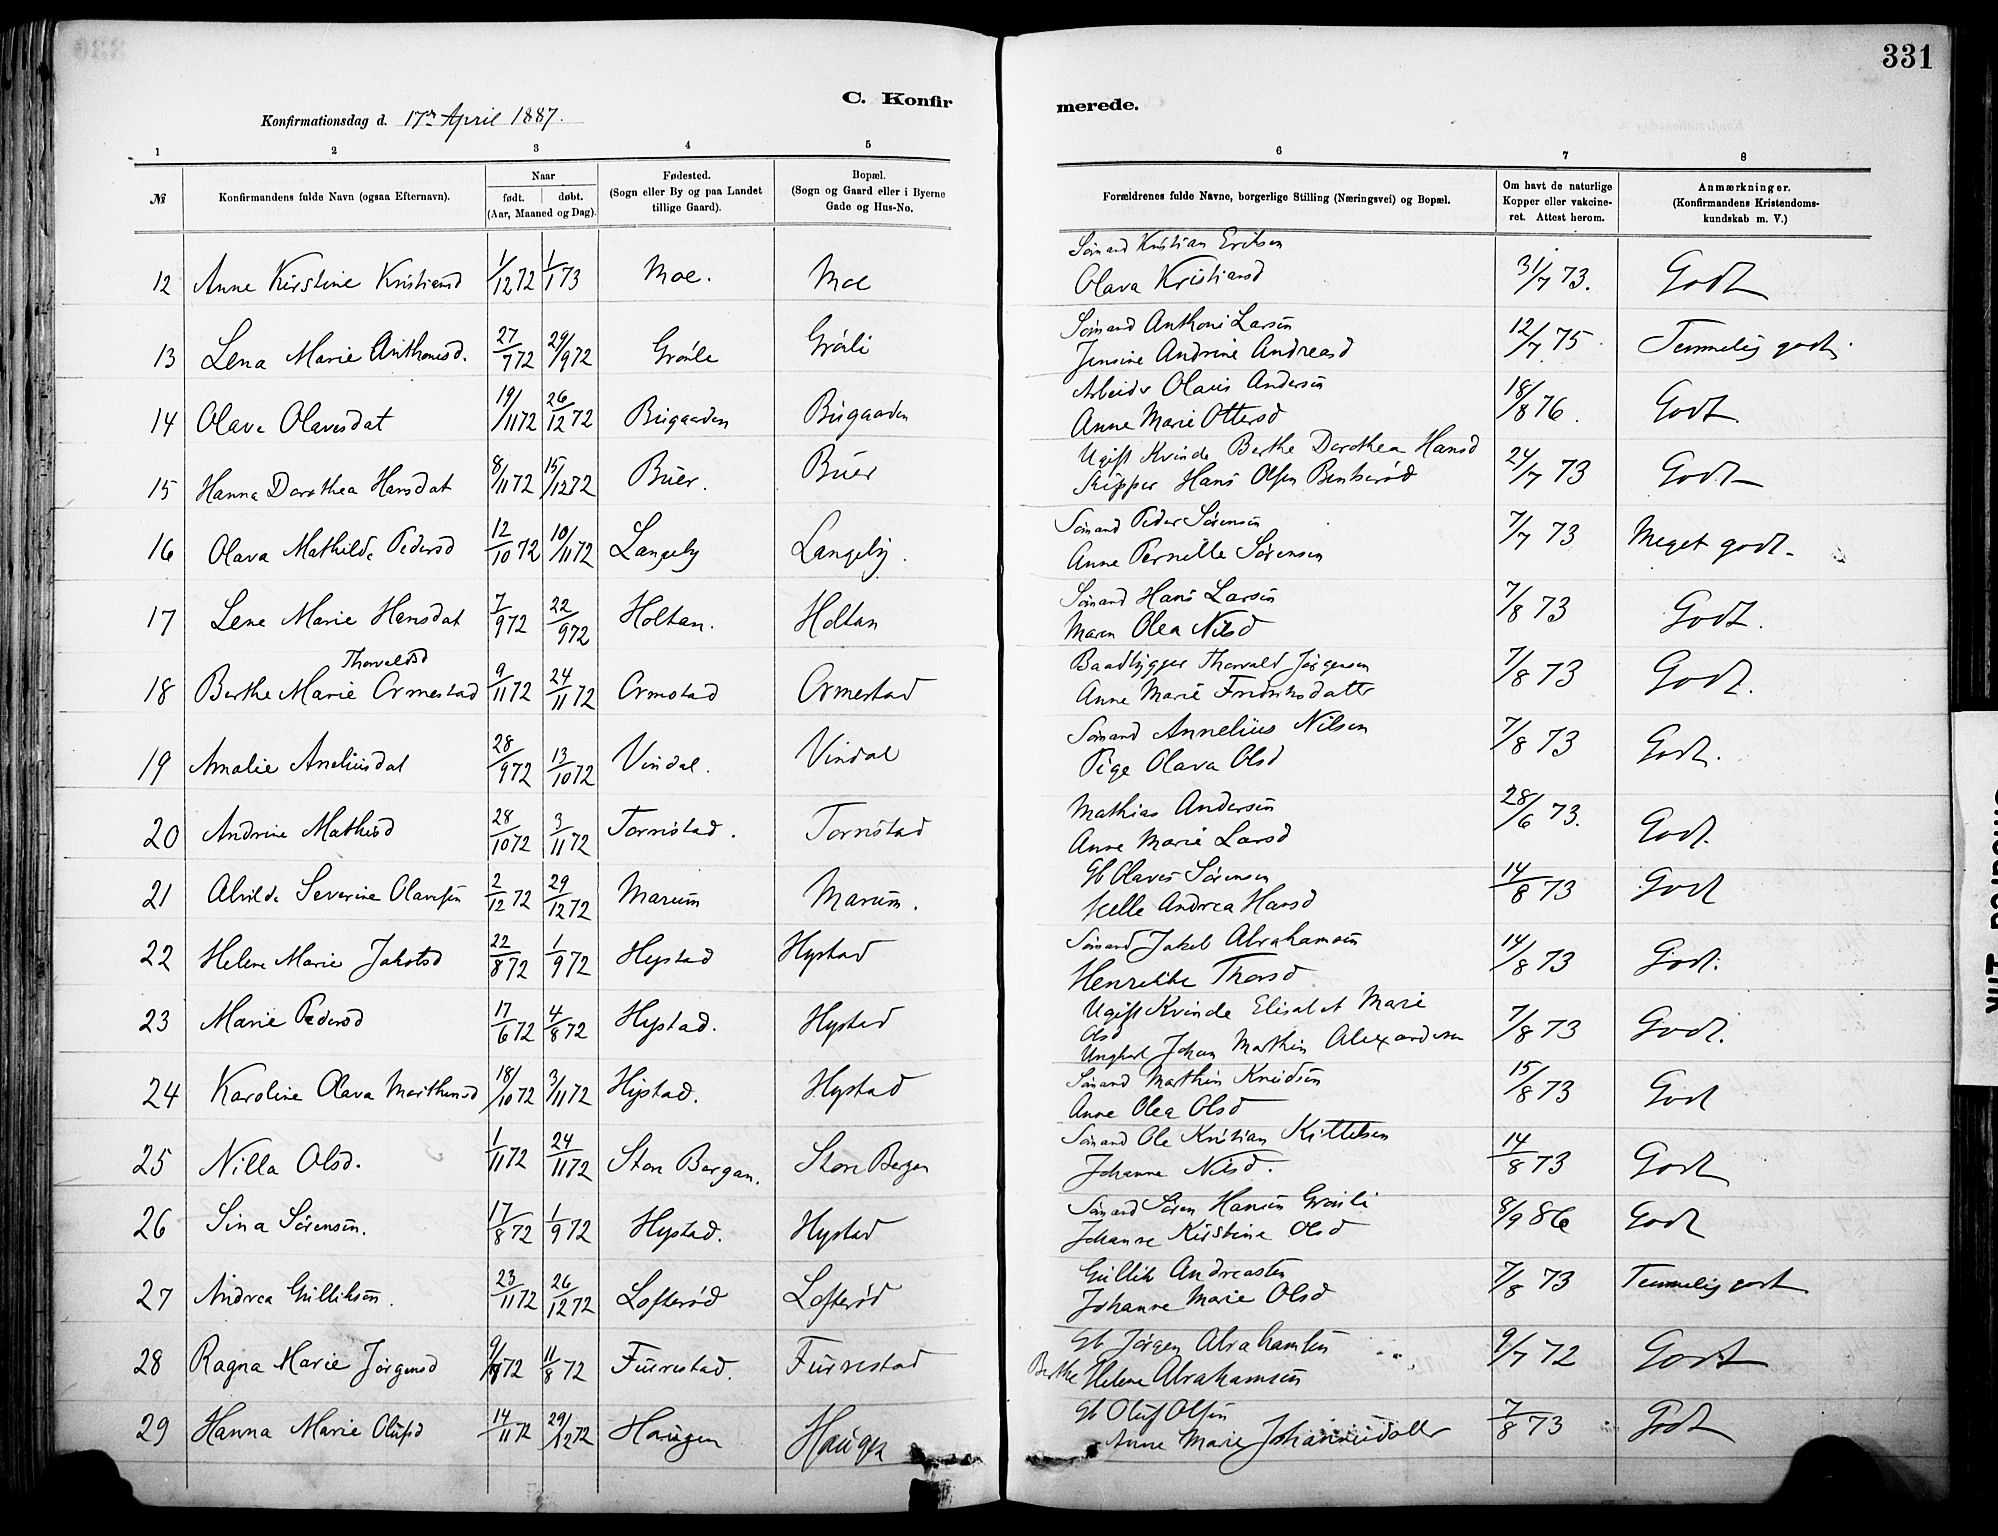 331
C. Konfir merede.
Konfirmationsdag d. 17de April 1887.
1 2 3 4 5 6 7 8
№ Konfirmandens fulde Navn (ogsaa Efternavn). Naar født. døbt. (Aar, Maaned og Dag). Fødested. (Sogn eller By og paa Landet tillige Gaard). Bopæl. (Sogn og Gaard eller i Byerne Gade og Hus-No. Forældrenes fulde Navne, borgerlige Stilling (Næringsvei) og Bopæl. Om havt de naturlige Kopper eller vakcineret. Attest herom. Anmærkninger. (Konfirmandens Kristendomskundskab m. V.)
12 Anne Kirstine Kristiansd 1/12 72 1/1 73 Moe. Moe Sømand Kristian Eriksen
Olava Kristiansd 31/7 73. Godt
13 Lena Marie Anthonisd. 27/7 72 29/9 72 Grönle Grönli Sømand Anthoni Larsen
Jensine Andrine Andreasd 12/7 75 Temmelig godt.
14 Olava Olavesdat 19/11 72 26/12 72 Bugaarden Bugaarden Arbeider Olaus Andersen
Anne Marie Ottersd 18/8 76. Godt
15 Hanna Dorothea Hansdat 8/11 72 15/12 72 Buer. Buer Ugift Kvinde Berthe Dorothea Hansd
Skipper Hans Olsen Bentserød 24/7 73 Godt
16 Olava Mathilde Pedersd 12/10 72 10/11 72 Langeby Langeby. Sømand Peder Sørensen
Anne Pernille Sørensen 7/7 73 Meget godt.
17 Lene Marie Hansdat 7/9 72 22/9 72 Holtan. Holtan Sømand Hans Larsen
Maren Olea Nilsd 7/8 73 Godt.
18 Berthe Marie Thorvaldsd Ormestad 9/11 72 24/11 72 Ormstad Ormestad Baadbygger Thorvald Jørgensen
Anne Marie Fredriksdatter 7/8 73 Godt.
19 Amalie Aneliusdat 28/9 72 13/10 72 Vindal. Vindal Sømand Annelius Nilsen
Pige Olava Olsd 7/8 73 Godt.
20 Andrine Mathisd 28/10 72 3/11 72 Tornstad. Tornstad Mathias Andersen
Anne Marie Larsd 28/6 73. Godt.
21 Alvilde Severine Olavesen 2/12 72 29/12 72 Marum Marum. Gb Olaves Sørensen
Helle Andrea Hansd 14/8 73 Godt
22 Helene Marie Jakobsd 22/8 72 1/9 72 Hystad Hystad Sømand Jakob Abrahamsen
Henrikke Thorsd 14/8 73 Godt.
23 Marie Pedersd 17/6 72 4/8 72 Hystad. Hystad Ugift Kvinde Elisabet Marie
Olsd
Ungkarl Johan Marthin Alexandersen 7/8 73 Godt.
24 Karoline Olava Marthinsd 18/10 72 3/11 72 Hystad. Hystad Sømand Marthin Knudsen
Anne Olea Olsd 15/8 73 Godt
25 Nilla Olsd. 1/11 72 24/11 72 Store Bergan. Store Bergan Sømand Ole Kristian Kittelsen
Johanne Nilsd. 14/8 73 Godt
26 Sina Sørensen. 17/8 72 1/9 72 Hystad. Hystad Sømand Søren Hansen Grønli
Johanne Kirstine Olsd 8/9 86 Godt
27 Andrea Gulliksen. 23/11 72 26/12 72 Lofterød Lofterød Gullik Andreassen
Johanne Marie Olsd 7/8 73 Temmelig godt.
28 Ragna Marie Jørgensd 9/7 72 11/8 72 Furrestad. Furrestad Gb Jørgen Abrahamsen
Berthe Helene Abrahamsen 9/7 72 Godt
29 Hanna Marie Olufsd 14/11 72 29/12 72 Haugen Haugen Gb Oluf Olsen
Anne Marie Johannesdatter 7/8 73 Godt